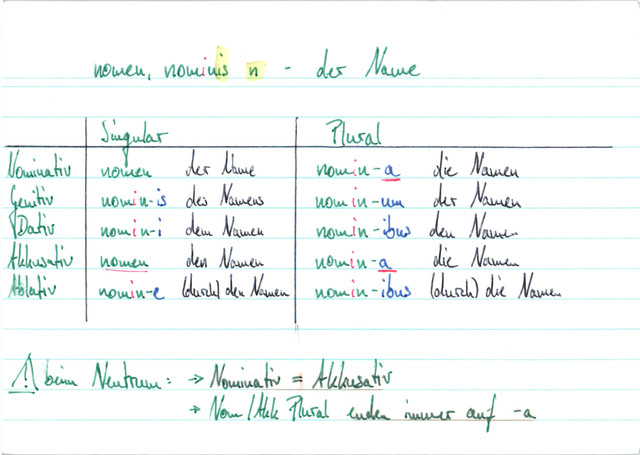 nomen, nominis n - der Name
Singular Plural
Nominativ nomen der Name nomin-a die Namen
Genitiv nomin-is des Namens nomin-um der Namen
Dativ nomin-i dem Namen nomin-ibus den Namen
Akkusativ nomen den Namen nomin-a die Namen
Ablativ nomin-e (durch) den Namen nomin-ibus (durch) die Namen
⚠ beim Neutrum: → Nominativ = Akkusativ
→ Nom/Akk Plural enden immer auf -a